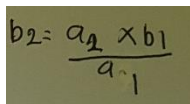 b2 = a2 × b1
a1